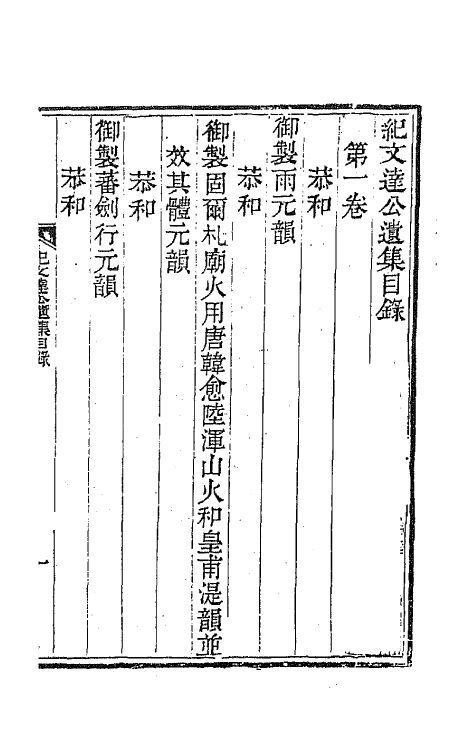 紀文達公遺集目錄
第一卷
恭和
御製雨元韻
恭和
御製固爾札廟火用唐韓愈陸渾山火和皇甫湜韻並
效其體元韻
恭和
御製蕃劍行元韻
恭和
紀文達公遺集目錄
一